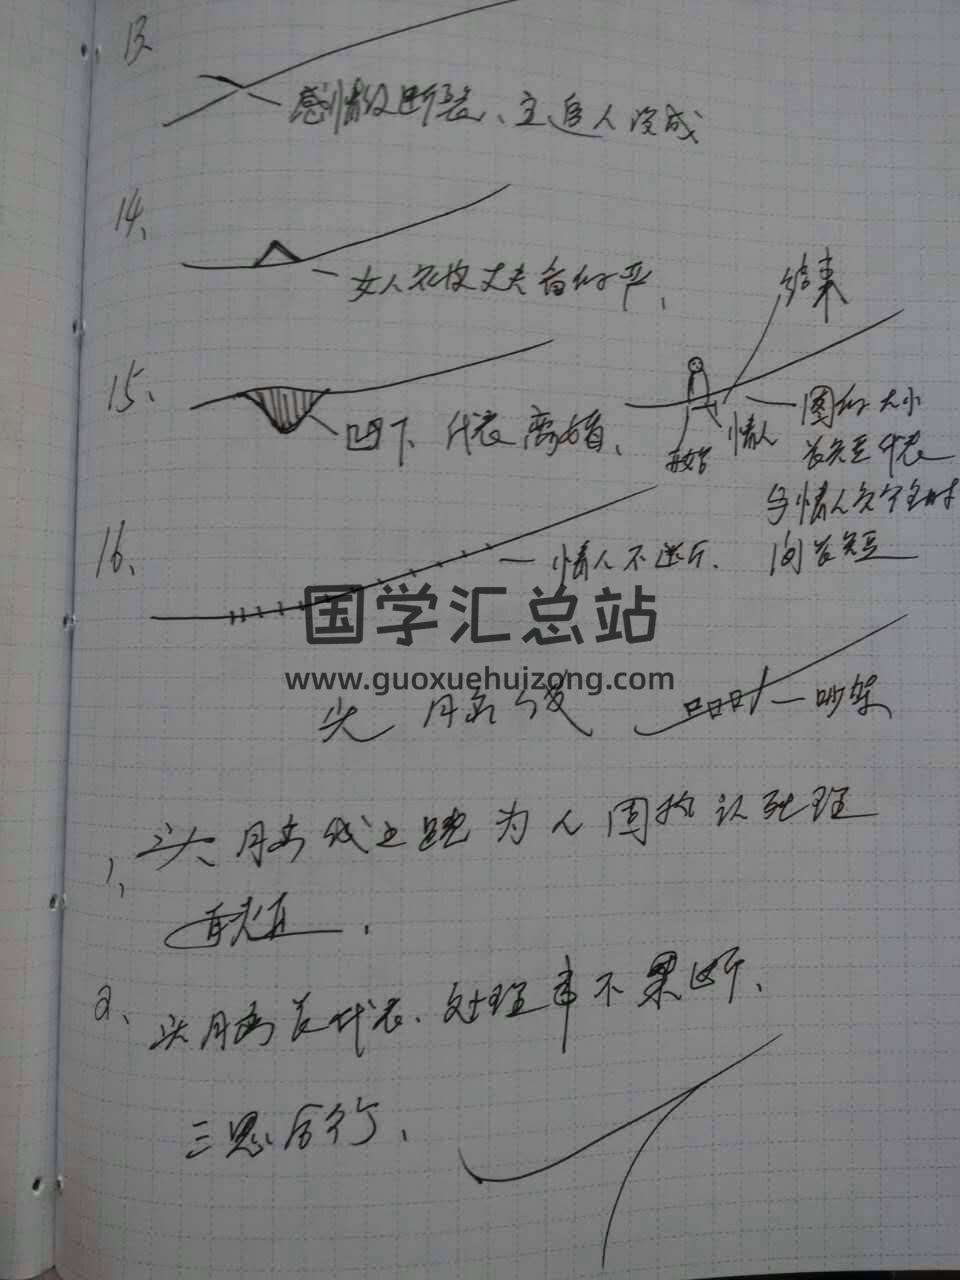 13、
感情线断裂、主追人没成
14、
女人和
丈夫
结束
15、
凹下 代表离婚、
开始
情人
图的大小
长短代表
与情人
时
间长短
16、
情人不断、
国学汇总站
www.guoxuehuizong.com
头脑线
吵架
1、头脑线上翘为人固执认死理
2、头脑长代表、处理事不果断、
三思后行、